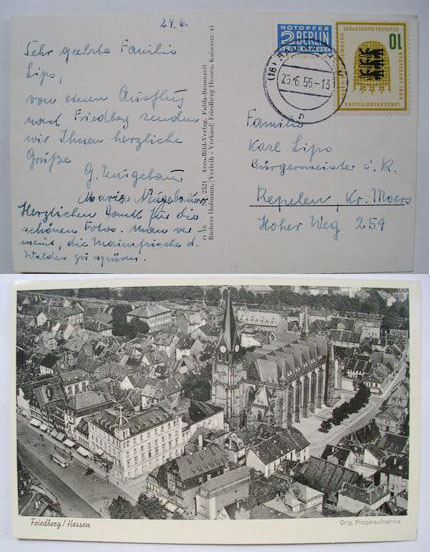 24.6.
Sehr geehrte Familie
Lips,
von einem Ausflug
nach Friedberg senden
wir Ihnen herzliche
Grüße
G. Neugebauer
Maria Neugebauer
Herzlichen Dank für die
schönen Fotos. Man ver-
meint, die Maienfrische d.
Waldes zu spüren.
2521 Aero-Bild-Verlag, Fulda-Bronnzell
Bücherei Hofmann, Verleih u. Verkauf; Friedberg Hessen, Kaiserstr. 41
NOTOPFER
2 BERLIN
STEUERMARKE
(16)
25.6.55-13
10
Familie
Karl Lips
Bürgermeister i. R.
Repelen, Kr. Moers
Hoher Weg 254
Friedberg/Hessen
Orig. Fliegeraufnahme